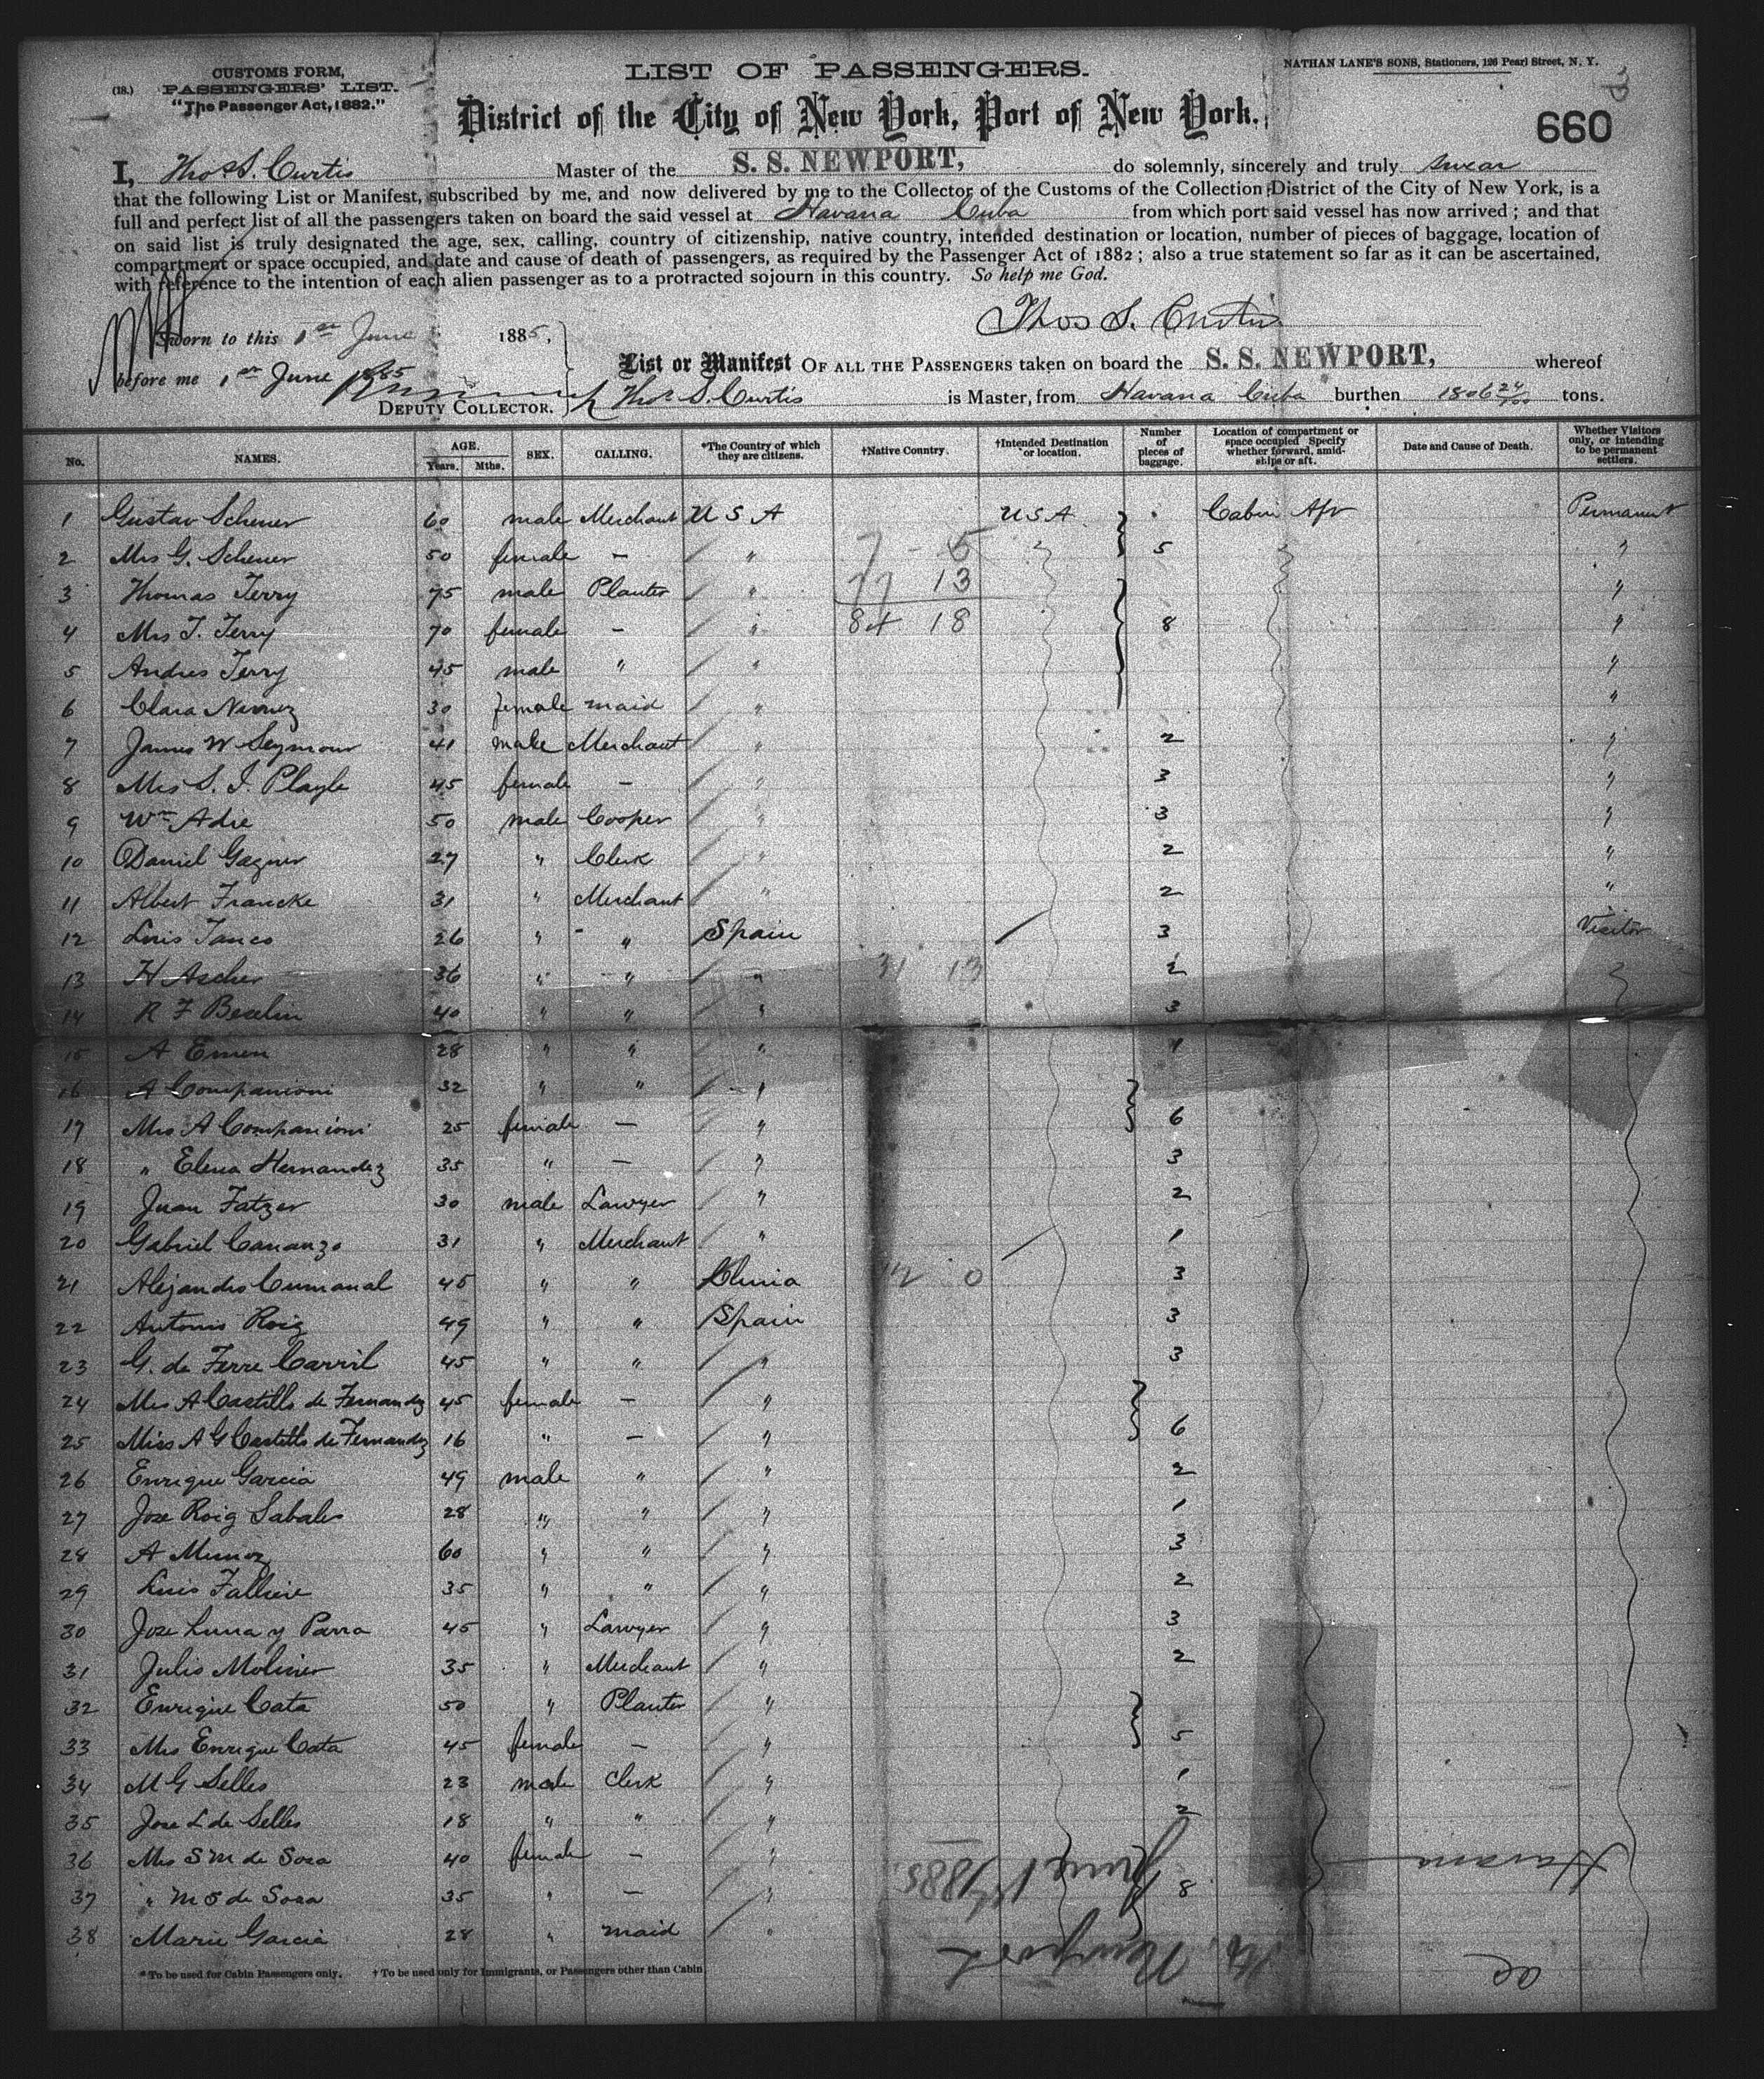 CUSTOMS FORM,
(18.) PASSENGERS' LIST.
"The Passenger Act, 1882."
LIST OF PASSENGERS.
NATHAN LANE'S SONS, Stationers, 126 Pearl Street, N. Y.
District of the City of New York, Port of New York.
660
I, Thos S. Curtis Master of the S. S. NEWPORT, do solemnly, sincerely and truly swear
that the following List or Manifest, subscribed by me, and now delivered by me to the Collector of the Customs of the Collection District of the City of New York, is a
full and perfect list of all the passengers taken on board the said vessel at Havana Cuba from which port said vessel has now arrived; and that
on said list is truly designated the age, sex, calling, country of citizenship, native country, intended destination or location, number of pieces of baggage, location of
compartment or space occupied, and date and cause of death of passengers, as required by the Passenger Act of 1882; also a true statement so far as it can be ascertained,
with reference to the intention of each alien passenger as to a protracted sojourn in this country. So help me God.
Thos S. Curtis
Sworn to this 1st June 1885,
before me 1st June 1885
DEPUTY COLLECTOR.
List or Manifest OF ALL THE PASSENGERS taken on board the S. S. NEWPORT, whereof
Thos S. Curtis is Master, from Havana Cuba burthen 1806 24/100 tons.
No. NAMES. AGE. Years. Mths. SEX. CALLING. *The Country of which they are citizens. †Native Country. †Intended Destination or location. Number of pieces of baggage. Location of compartment or space occupied Specify whether forward, amidships or aft. Date and Cause of Death. Whether Visitors only, or intending to be permanent settlers.
1 Gustav Scheuer 60 male Merchant U S A USA Cabin Aft Permanent
2 Mrs G. Scheuer 50 female — " 7 - 5 5 "
3 Thomas Terry 75 male Planter " 77 13 "
4 Mrs T. Terry 70 female — " 84 18 8 "
5 Andres Terry 45 male " " "
6 Clara Nunez 30 female maid " "
7 James W Seymour 41 male Merchant " 2 "
8 Mrs S. I. Playle 45 female — " 3 "
9 Wm Adie 50 male Cooper " 3 "
10 Daniel Gagner 27 " Clerk " 2 "
11 Albert Francke 31 " Merchant " 2 "
12 Luis Tanco 26 " " Spain 3 Visitor
13 H Ascher 36 " " " 31 13 2
14 R F Beselin 40 " " " 3
15 A Emen 28 " " " 1
16 A Companioni 32 " " "
17 Mrs A Companioni 25 female — " 6
18 " Elena Hernandez 35 " — " 3
19 Juan Fatzer 30 male Lawyer " 2
20 Gabriel Cananzo 31 " Merchant " 1
21 Alejandro Cumanal 45 " " China 0 3
22 Antonio Roig 49 " " Spain 3
23 G. de Ferre Carril 45 " " " 3
24 Mrs A Castillo de Fernandez 45 female — "
25 Miss A G Castillo de Fernandez 16 " — " 6
26 Enrique Garcia 49 male " " 2
27 Jose Roig Sabales 28 " " " 1
28 A Munoz 60 " " " 3
29 Luis Fallieie 35 " " " 2
30 Jose Luna y Parra 45 " Lawyer " 3
31 Julio Molinir 35 " Merchant " 2
32 Enrique Cata 50 " Planter "
33 Mrs Enrique Cata 45 female — " 5
34 M G Selles 23 male Clerk " 1
35 Jose L de Selles 18 " " " 2
36 Mrs S M de Sosa 40 female — "
37 " M S de Sosa 35 " — " 8
38 Marie Garcia 28 " maid "
*To be used for Cabin Passengers only. †To be used only for Immigrants, or Passengers other than Cabin
Str. Newport
Havana
June 1st 1885